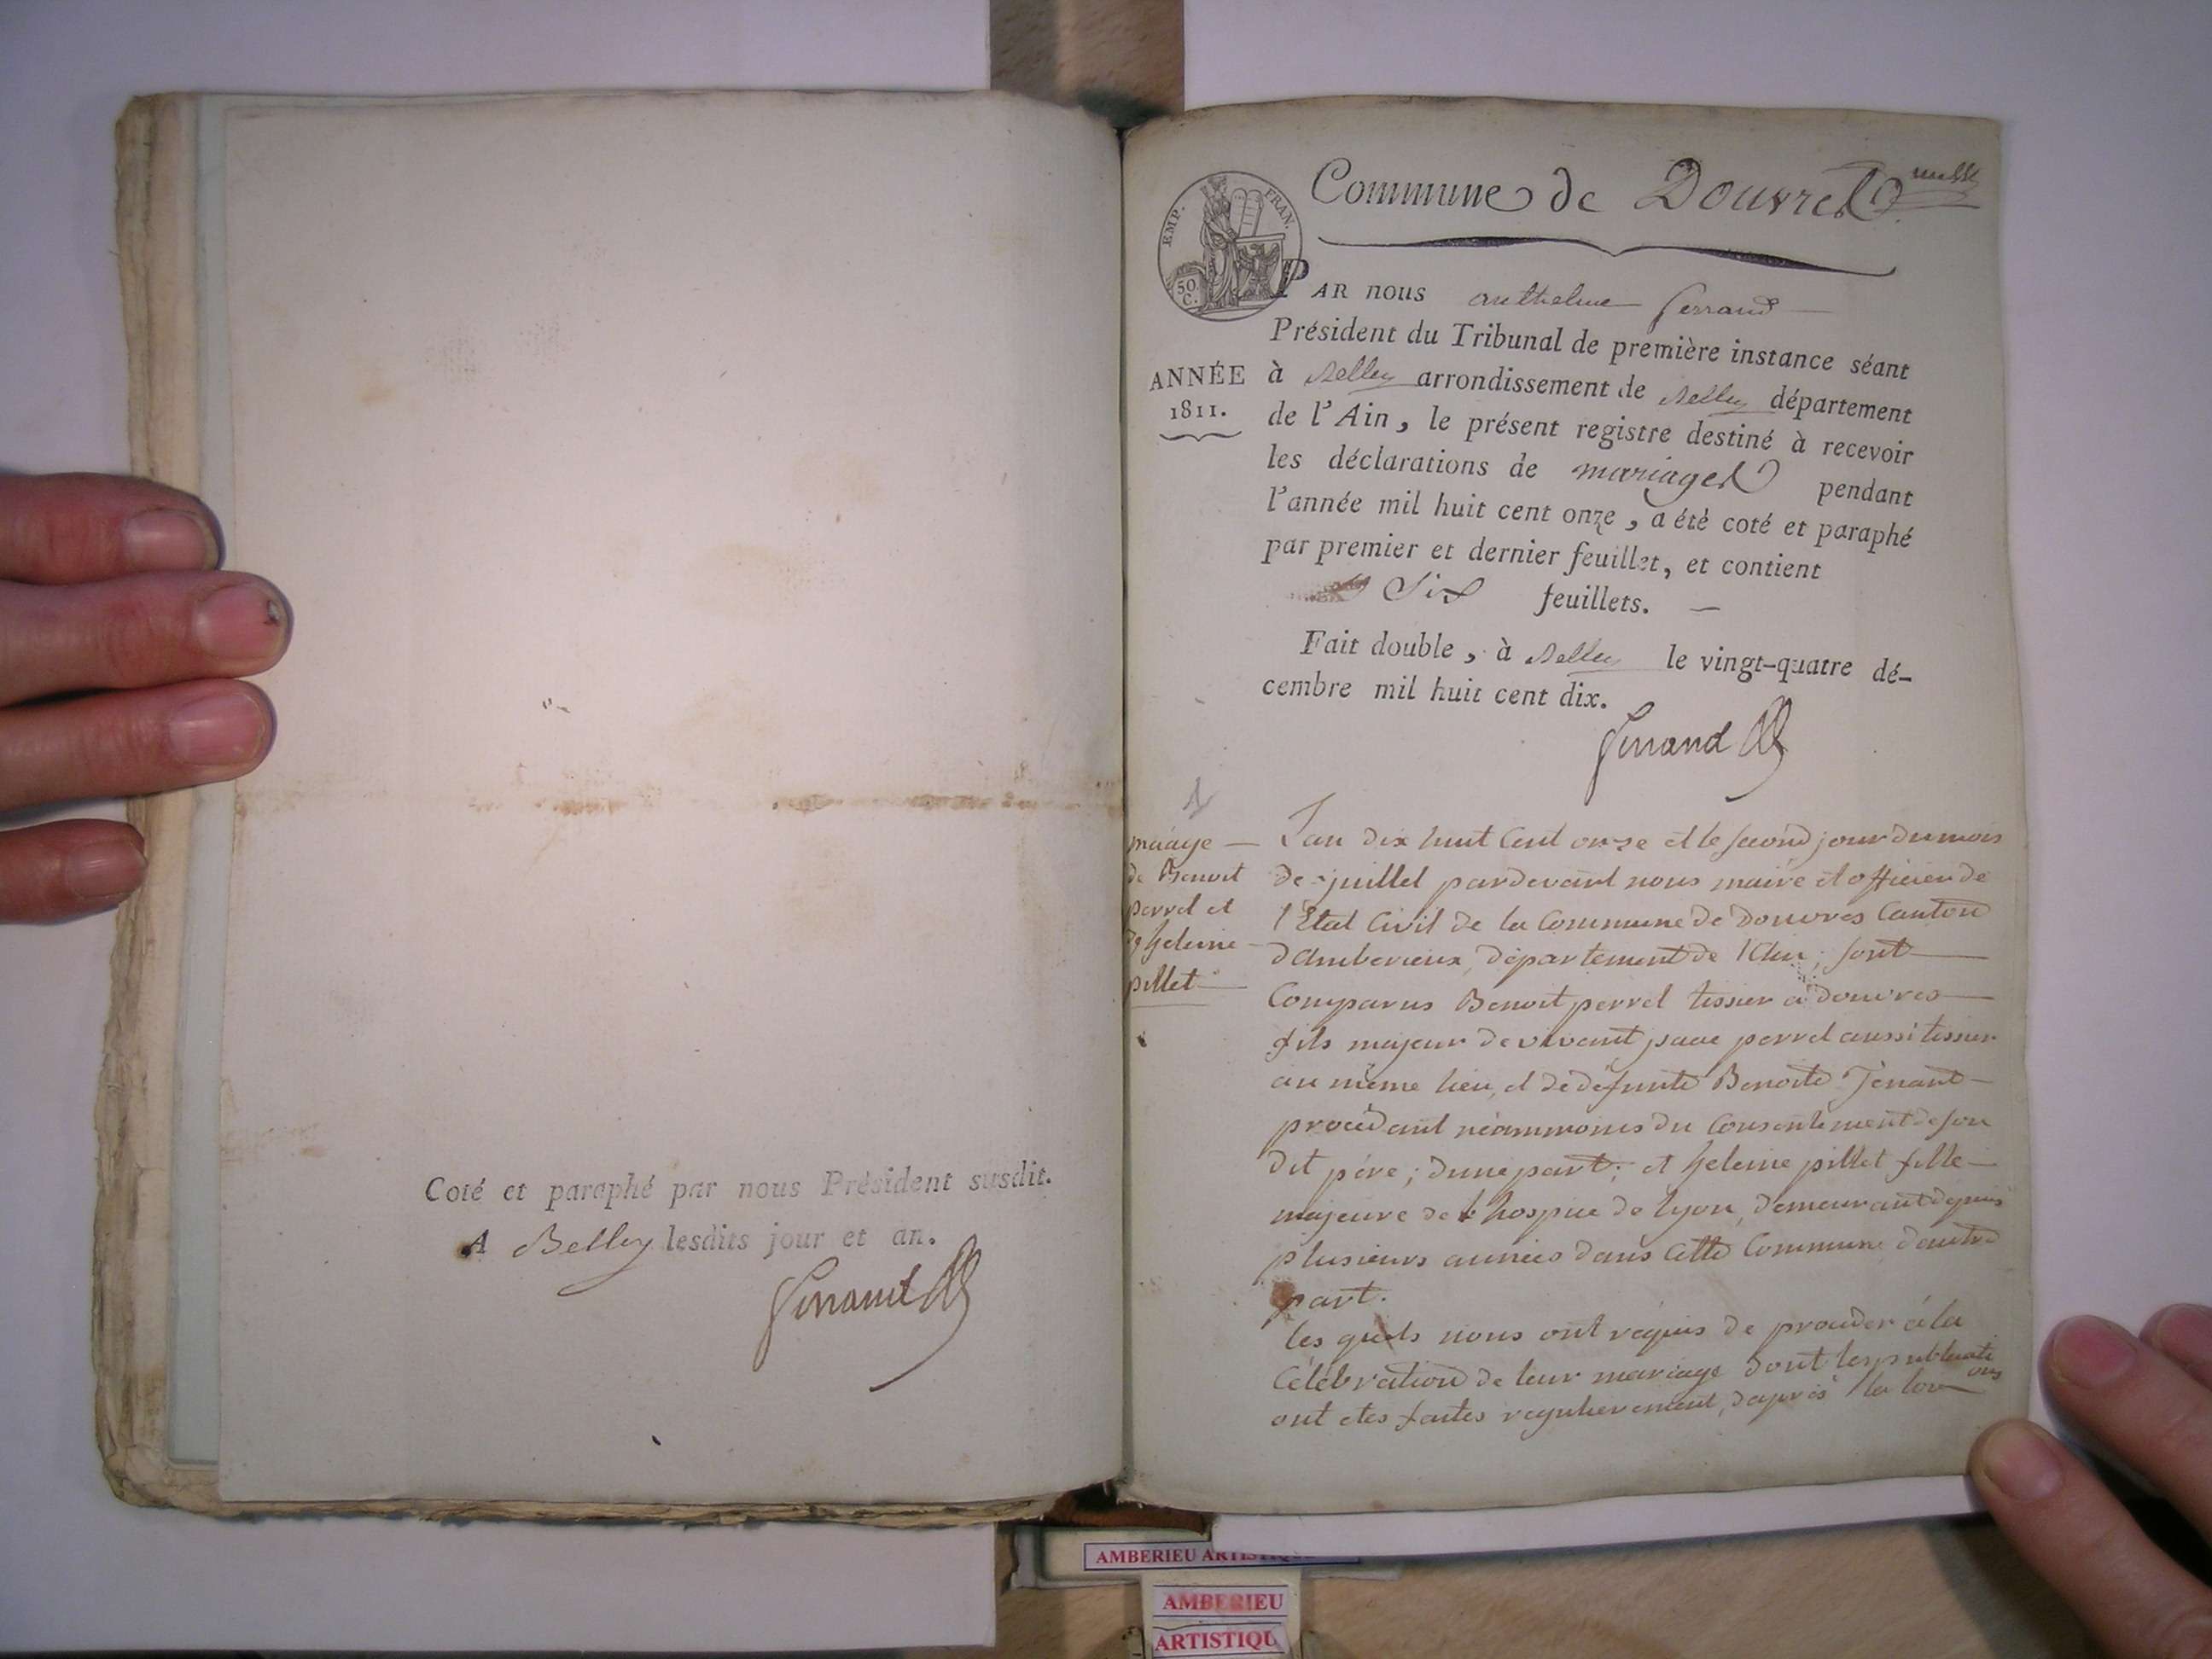 Coté et paraphé par nous Président susdit.
A Belley lesdits jour et an.
Ferrand
Commune de Douvres
EMP. FRAN.
50 C.
PAR nous anthelme ferrand
Président du Tribunal de première instance séant
ANNÉE
1811.
à Belley arrondissement de Belley département
de l'Ain, le présent registre destiné à recevoir
les déclarations de mariages pendant
l'année mil huit cent onze, a été coté et paraphé
par premier et dernier feuillet, et contient
Six feuillets.
Fait double, à Belley le vingt-quatre dé-
cembre mil huit cent dix.
Ferrand
1
mariage
de Benoit
perret et
heleine
pillet
Lan dix huit Cent onze et le second jour du mois
de juillet pardevant nous maire et officier de
l'Etat Civil de la Commune de Douvres Canton
d'Amberieux, département de l'Ain, sont
Comparus Benoit perret tissier à douvres
fils majeur de vivant perret aussi tissier
au même lieu, et de défunte Benoite Tenant
procédant néanmoins du Consentement de son
dit père; dune part; et heleine pillet fille
majeure de hospice de lyon, demeurant depuis
plusieurs années dans cette Commune d'autre
part.
les quels nous ont requis de proceder à la
Célébration de leur mariage dont les publications
ont etes faites regulierement, daprès la loi
AMBERIEU
AMBERIEU
ARTISTIQU